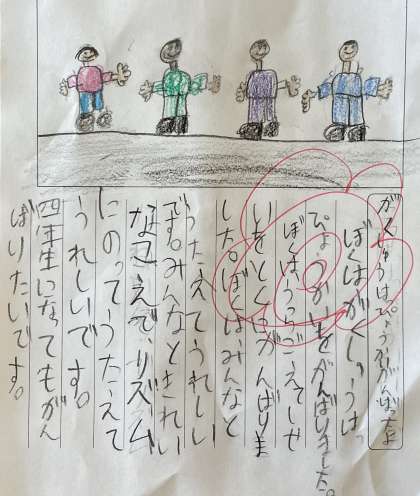 がくしゅうはぴょうかいがんばったよ
ぼくはがくしゅうはっ
ぴょうかいをがんばりました。
ぼくはうらごえでしせ
いをとくにがんばりま
した。ぼくは、みんなと
うたえてうれしい
です。みんなときれい
なこえで、リズム
にのってうたえて
うれしいです。
四年生になってもがん
ばりたいです。